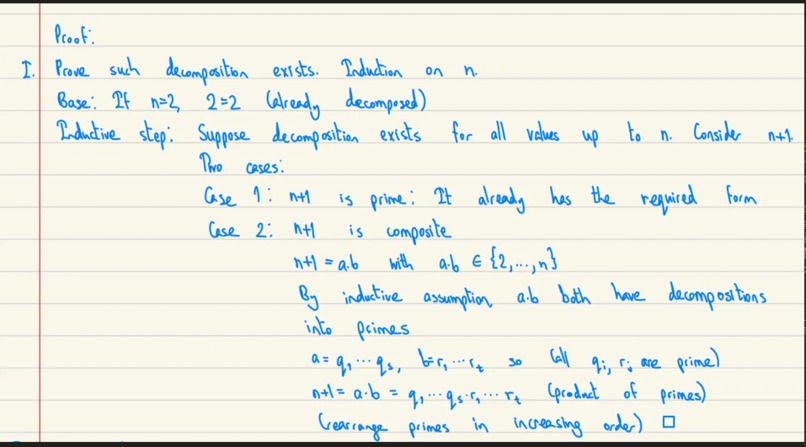 Proof:
I. Prove such decomposition exists. Induction on n.
Base: If n=2, 2=2 (already decomposed)
Inductive step: Suppose decomposition exists for all values up to n. Consider n+1
Two cases:
Case 1: n+1 is prime: It already has the required form
Case 2: n+1 is composite
n+1 = a.b with a.b ∈ {2,...,n}
By inductive assumption, a.b both have decompositions
into primes
a = q₁ ... qₛ, b=r₁ ... rₜ so (all qᵢ, rⱼ are prime)
n+1 = a.b = q₁ ... qₛ.r₁ ... rₜ (product of primes)
(rearrange primes in increasing order) □